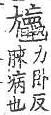 力卧反
膝病也